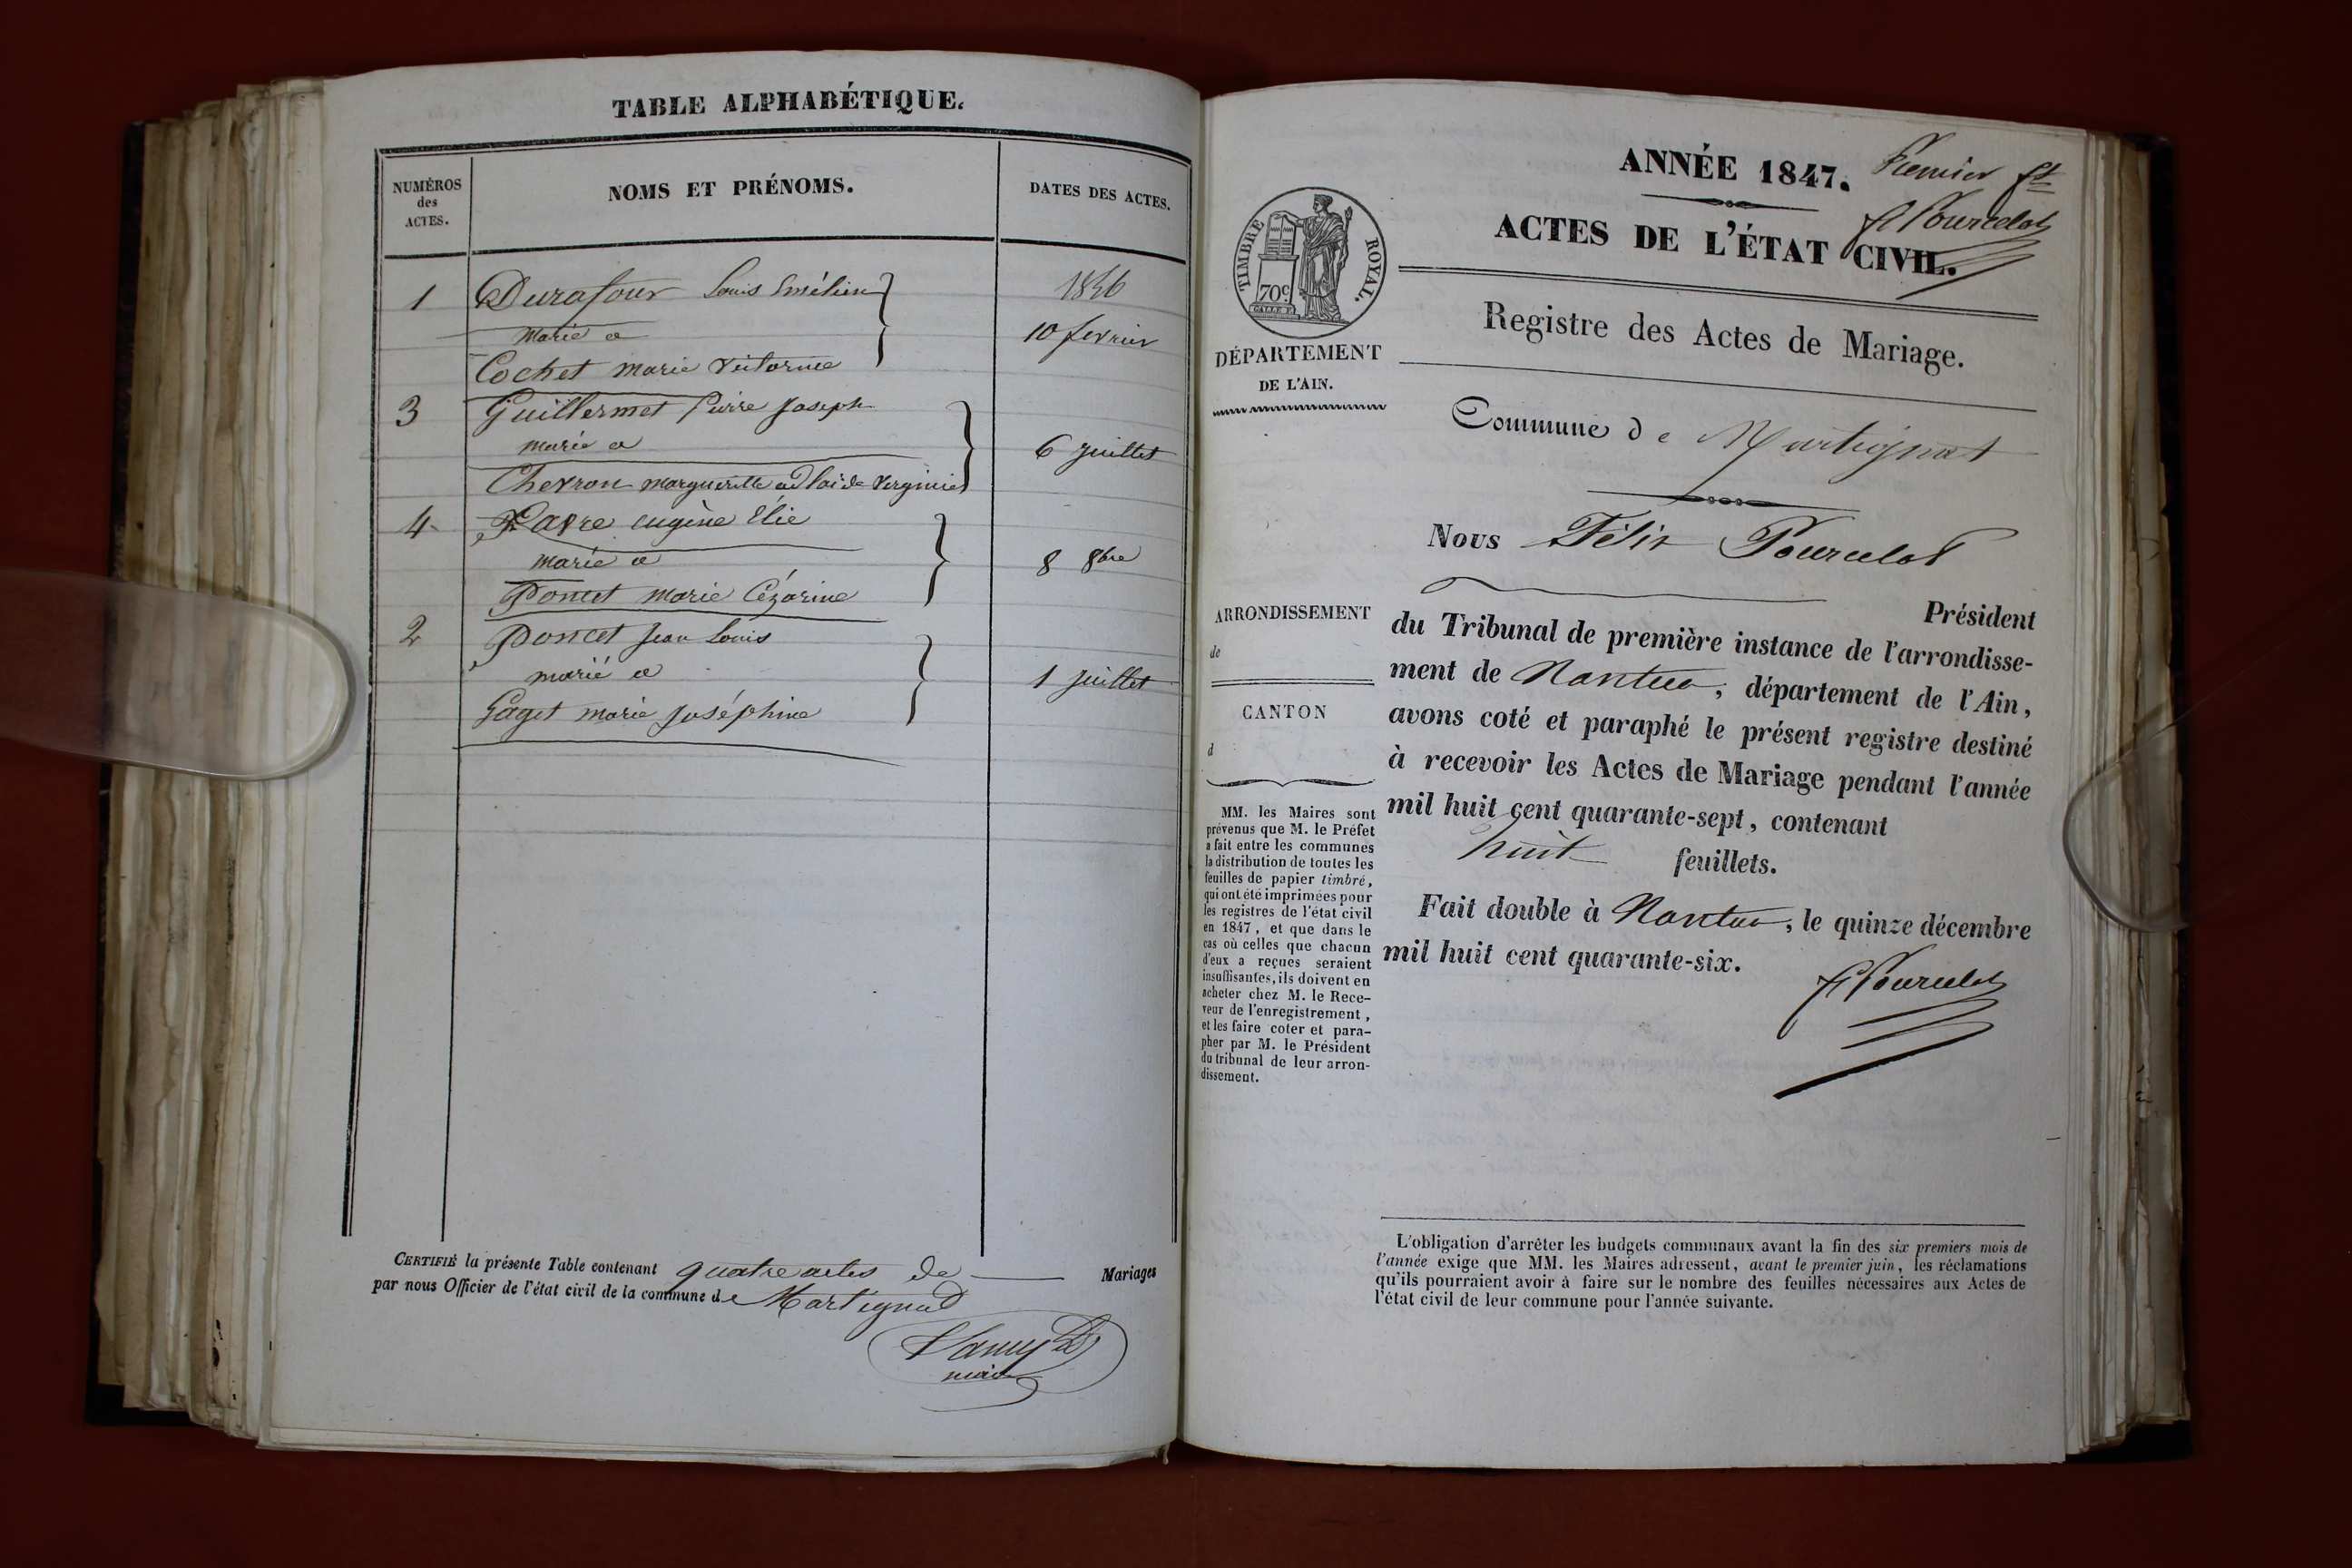 TABLE ALPHABÉTIQUE.
NUMÉROS
des
ACTES.
NOMS ET PRÉNOMS.
DATES DES ACTES.
1 Durafour Louis Emélien 1846
marié a 10 fevrier
Cochet marie
3 Guillermet Pierre Joseph
marié a 6 juillet
Chevron margueritte adlaide Verginie
4 Favre eugène Elie
marié a 8 8bre
Poncet marie Cézarine
2 Poncet Jean Louis
marié a 1 juillet
Gaget marie Joséphine
CERTIFIÉ la présente Table contenant quatre actes de Mariages
par nous Officier de l'état civil de la commune de Martignat
maire
ANNÉE 1847. Premier ft
F Pourcelot
ACTES DE L'ÉTAT CIVIL.
TIMBRE ROYAL.
70c
Registre des Actes de Mariage.
DÉPARTEMENT
DE L'AIN.
Commune de Martignat
Nous Félix Pourcelot
Président
ARRONDISSEMENT
de
CANTON
d
du Tribunal de première instance de l'arrondisse-
ment de Nantua, département de l'Ain,
avons coté et paraphé le présent registre destiné
à recevoir les Actes de Mariage pendant l'année
mil huit cent quarante-sept, contenant
huit feuillets.
Fait double à Nantua, le quinze décembre
mil huit cent quarante-six.
F Pourcelot
MM. les Maires sont
prévenus que M. le Préfet
a fait entre les communes
la distribution de toutes les
feuilles de papier timbré,
qui ont été imprimées pour
les registres de l'état civil
en 1847, et que dans le
cas où celles que chacun
d'eux a reçues seraient
insuffisantes, ils doivent en
acheter chez M. le Rece-
veur de l'enregistrement,
et les faire coter et para-
pher par M. le Président
du tribunal de leur arron-
dissement.
L'obligation d'arrêter les budgets communaux avant la fin des six premiers mois de
l'année exige que MM. les Maires adressent, avant le premier juin, les réclamations
qu'ils pourraient avoir à faire sur le nombre des feuilles nécessaires aux Actes de
l'état civil de leur commune pour l'année suivante.